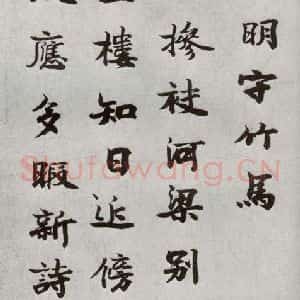 明守竹馬
摻袂河梁别
樓知日近傍
應多暇新詩
Shufawang.CN